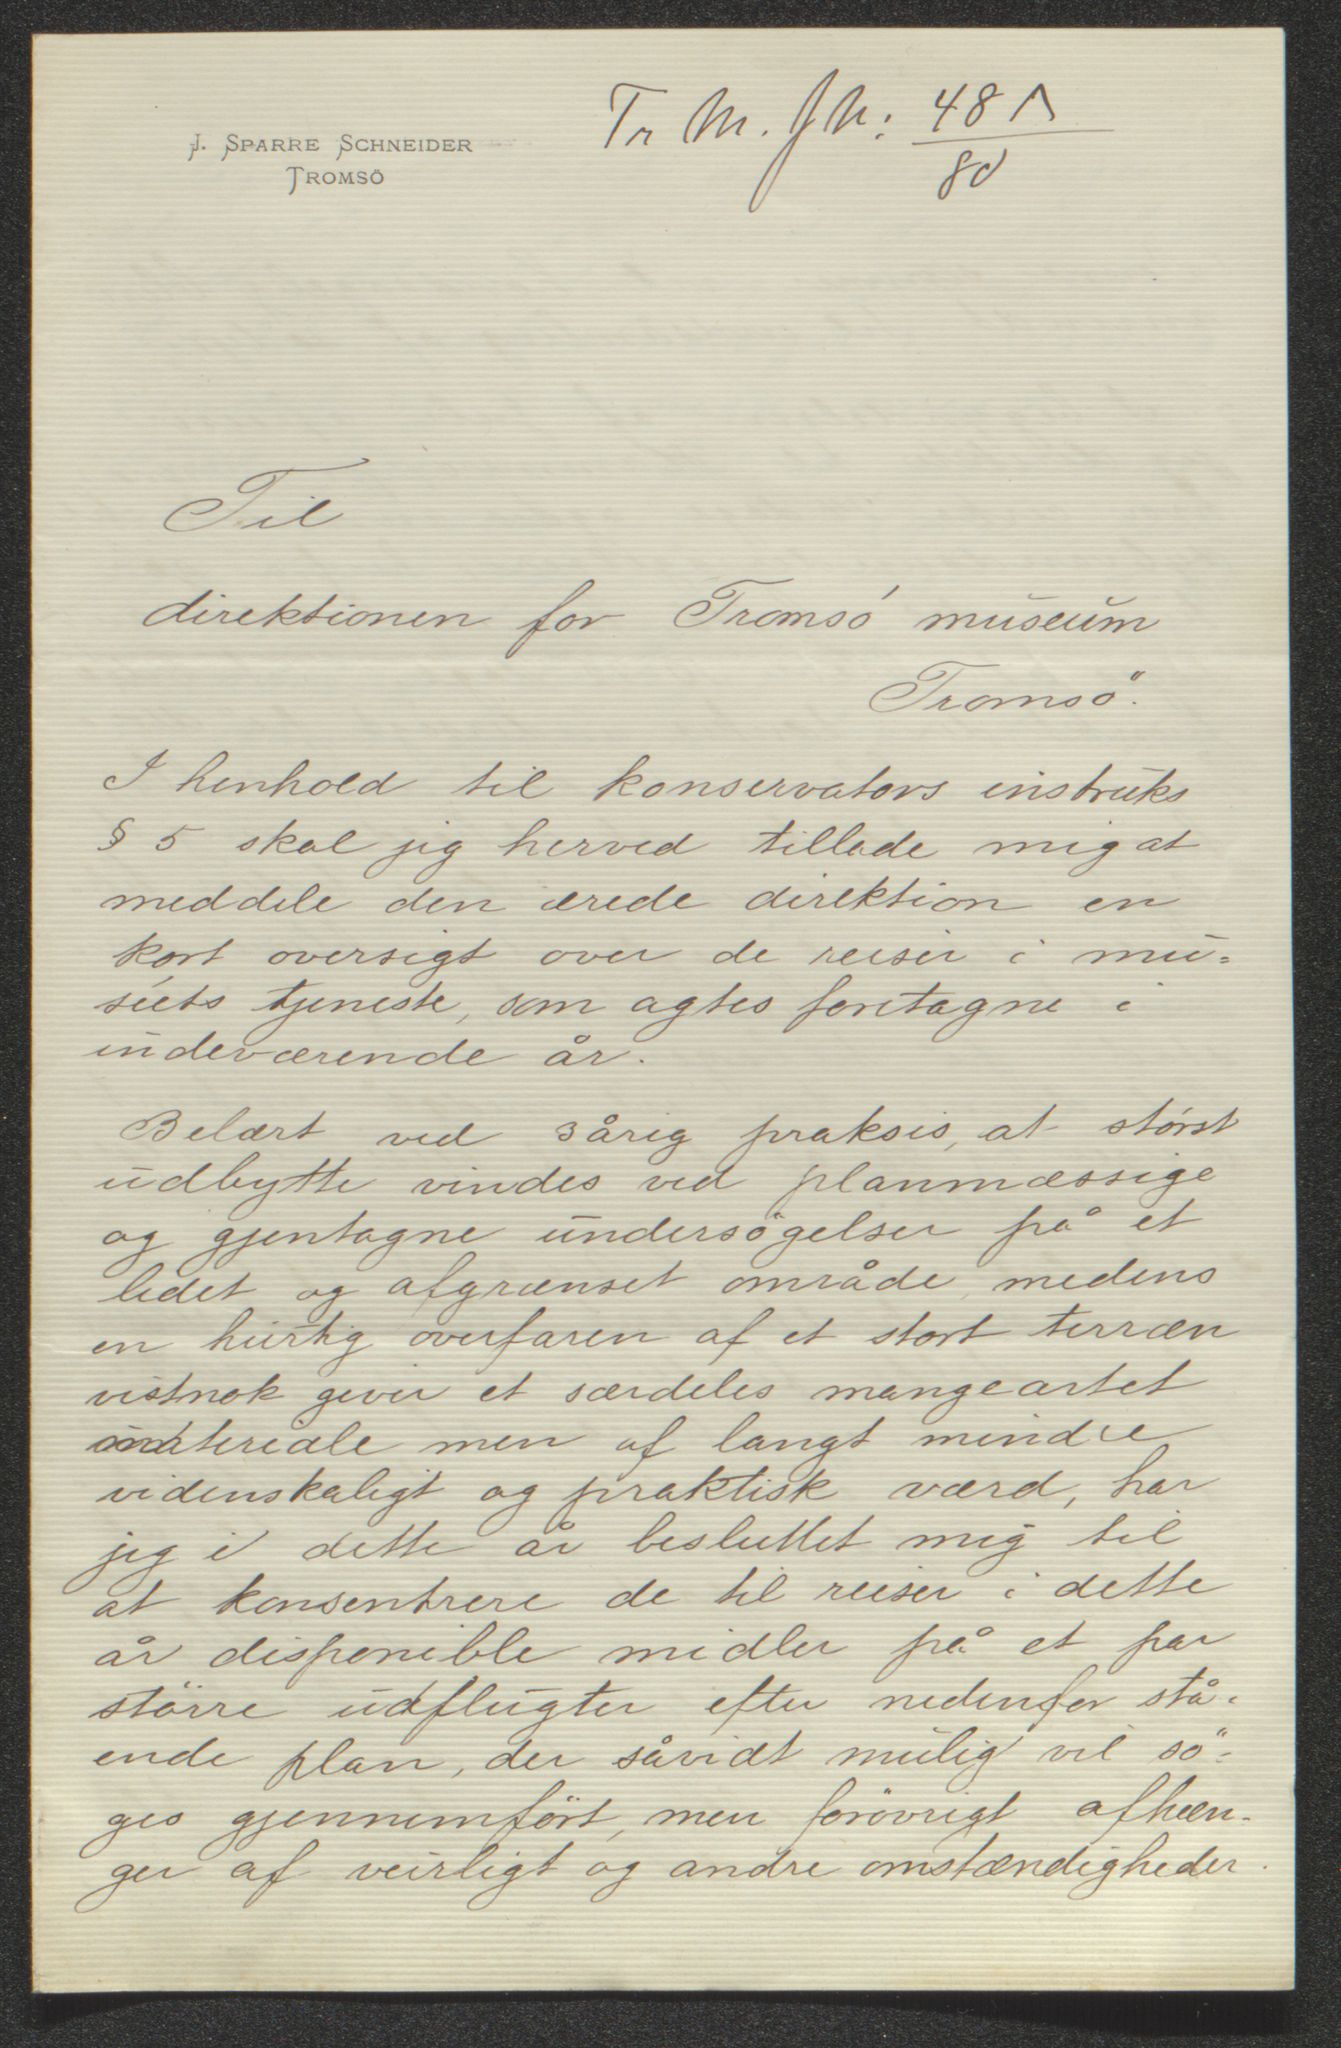 J. Sparre Schneider
Tromsö
Tr M. J N:
Til
direktionen for Tromsö museum
Tromsö.
I henhold til konservators instruks
§ 5 skal jeg herved tillade mig at
meddele den ærede direktion en
kort oversigt over de reiser i mu=
séets tjeneste, som agtes foretagne i
indeværende år.
Belært ved 3årig praksis, at störst
udbytte vindes ved planmæssige
og gjentagne undersögelser på et
lidet og afgrænset område, medens
en hurtig overfaren af et stort terræn
vistnok giver et særdeles mangeartet
materiale men af langt mindre
videnskaligt og praktisk værd, har
jeg i dette år besluttet mig til
at konsentrere de til reiser i dette
år disponible midler på et par
större udflugter efter nedenfor stå-
ende plan, der såvidt mulig vil sö-
ges gjennemfört, men forövrigt afhæn-
ger af veirligt og andre omstændigheder.